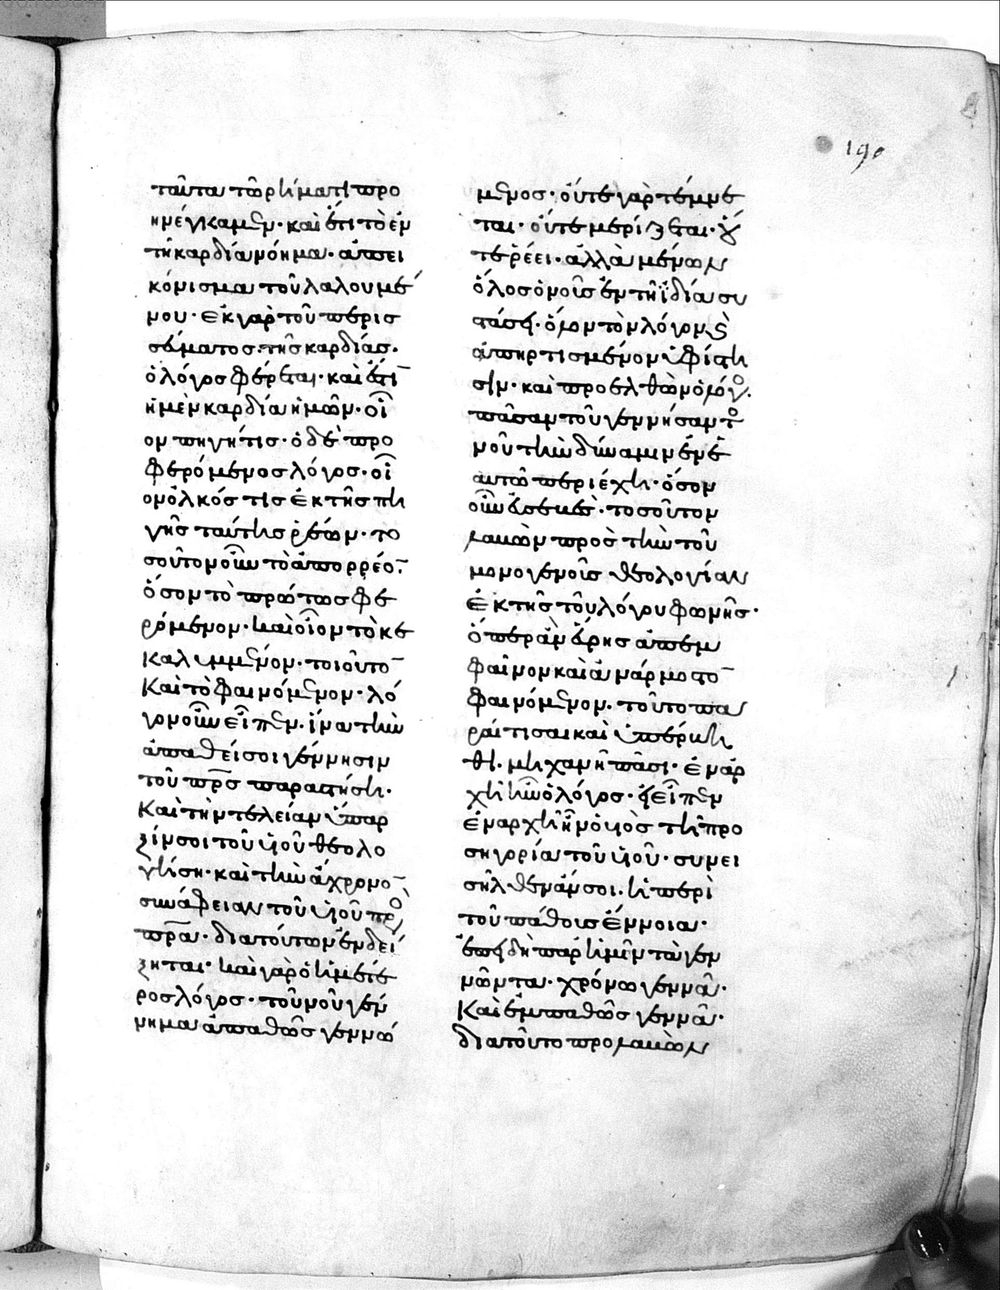 190
ταῦτα τῶ ῥήματι προ
ηνέγκαμεν· καὶ ἔτι τὸ ἐν
τῆ καρδία νόημα· ἀπει
κόνισμα τοῦ λαλουμέ
νου· ἐκ γὰρ τοῦ περισ
σεύματος τῆς καρδίας·
ὁ λόγος φέρεται· καὶ ἐστὶ
ἡ μὲν καρδία ἡμῶν· οἷ
ον πηγή τις· ὁ δὲ προ
φερόμενος λόγος· οἷ
ον ὁλκός τις ἐκ τῆς πη
γῆς ταύτης ῥέων· το
σοῦτον οὖν τὸ ἀπορρέον
ὅσον τὸ πρώτως φε
ρόμενον· καὶ οἷον τὸ κε
καλυμμένον· τοιοῦτο
καὶ τὸ φαινόμενον· λό
γον οὖν εἶπεν· ἵνα τὴν
ἀπαθεῖ σοι γέννησιν
τοῦ πρς παραστήση·
καὶ τὴν τελείαν ὕπαρ
ξίν σοι τοῦ υἱοῦ θεολο
γήση· καὶ τὴν ἄχρονο
συνάφειαν τοῦ υἱοῦ πρὸς
πρα· διὰ τούτων ἐνδεί
ξηται· καὶ γὰρ ὁ ἡμέτε
ρος λόγος· τοῦ νοῦ γέν
νημα ἀπαθῶς γεννώ
μενος· οὔτε γὰρ τέμνε
ται· οὔτε μερίζεται· οὔ
τε ῥέει· ἀλλὰ μένων
ὅλος ὁ νοῦς ἐν τῆ ἰδία συ
στάσει· ὅλον τὸν λόγον καὶ
ἀπηρτισμένον ὑφίστη
σιν· καὶ προελθὼν ὁ λόγος
πᾶσαν τοῦ γεννήσαντος
νοῦ τὴν δύναμιν ἐν ἑ
αυτῶ περιέχει· ὅσον
οὖν εὐσεβὲς· τοσοῦτον
λαβὼν πρὸς τὴν τοῦ
μονογενοῦς θεολογίαν
ἐκ τῆς τοῦ λόγου φωνῆς·
ὅπερ ἂν εὕρης ἀπεμ
φαῖνον καὶ ἀνάρμοστο
φαινόμενον· τοῦτο πα
ραίτισαι καὶ ὑπέρβη
θι· μηχανῆ πάση· ἐν ἀρ
χῆ ἦν ὁ λόγος· εἰ εἶπεν
ἐν ἀρχῆ ἦν ὁ υἱὸς τῆ προ
σηγορία τοῦ υἱοῦ· συνει
σῆλθεν ἄν σοι· ἡ περὶ
τοῦ πάθους ἔννοια·
ἐπειδὴ παρ' ἡμῖν τὰ γεν
νῶντα· χρόνω γεννᾶ·
καὶ ἐμπαθῶς γεννᾶ·
διὰ τοῦτο προλαβὼν